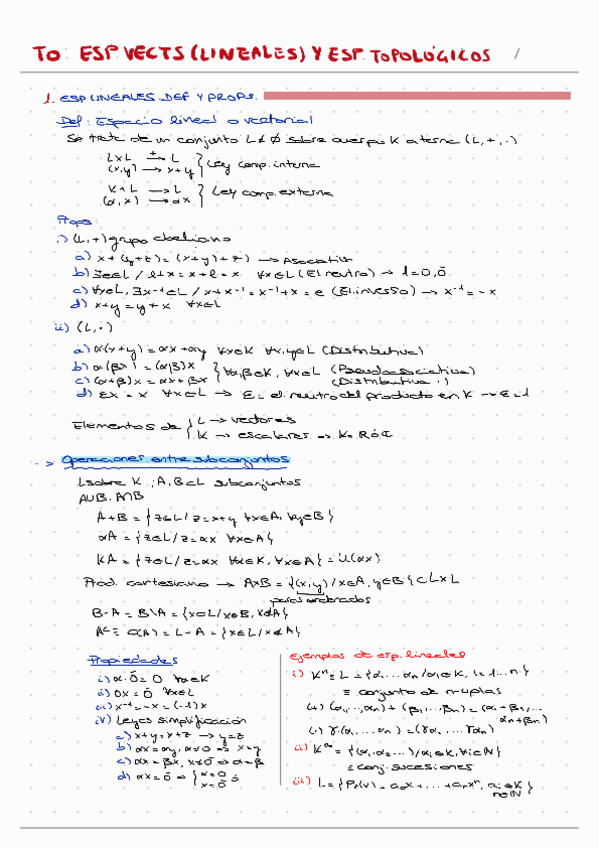 T0: ESP VECTS (LINEALES) Y ESP. TOPOLÓGICOS /
1. ESP LINEALES. DEF Y PROPS.
Def: Espacio lineal o vectorial
Se trata de un conjunto L≠∅ sobre cuerpo K a terna (L,+,·)
LxL +→ L
(x,y) → x+y } Ley comp. interna
K·L → L
(α,x) → αx } Ley comp. externa
Props:
i) (L,+) grupo abeliano
a) x+(y+z) = (x+y)+z) → Asociativa
b) ∃e∈L / e+x = x+e = x ∀x∈L (El neutro) → l=0,Ō
c) ∀x∈L, ∃x⁻¹∈L / x+x⁻¹ = x⁻¹+x = e (El inverso) → x⁻¹ = -x
d) x+y = y+x ∀x∈L
ii) (L,·)
a) α(x+y) = αx+αy ∀α∈K ∀x,y∈L (Distributiva)
b) α(βx) = (αβ)x } ∀α,β∈K, ∀x∈L (Pseudoasociativa)
c) (α+β)x = αx+βx (Distributiva ·)
d) εx = x ∀x∈L → ε = el neutro del producto en K → ε=1
Elementos de { L → vectores
K → escalares ⇒ K=R ó C
-> Operaciones entre subconjuntos
L sobre K ; A,B⊂L subconjuntos
A∪B, A∩B
A+B = {z∈L / z=x+y ∀x∈A, ∀y∈B}
αA = {z∈L / z=αx ∀x∈A}
KA = {z∈L / z=αx ∀α∈K, ∀x∈A} = U(αx)
Prod. cartesiano → AxB = {(x,y) / x∈A, y∈B} ⊂ LxL
pares ordenados
B-A = B\A = {x∈L / x∈B, x∉A}
Aᶜ ≡ C(A) = L-A = {x∈L / x∉A}
Propiedades
i) α·Ō = Ō ∀α∈K
ii) 0x = Ō ∀x∈L
iii) x⁻¹ = -x = (-1)x
iv) Leyes simplificación
a) x+y = x+z → y=z
b) αx = αy, α≠0 ⇒ x=y
c) αx = βx, x≠Ō ⇒ α=β
d) αx = Ō ⇒ { α=0 ó
x=Ō
Ejemplos de esp. lineales
i) Kⁿ ≡ L = {α₁ ... αn / αi∈K, i=1...n}
≡ conjunto de n-uplas
(+) (α₁,...,αn) + (β₁,...,βn) = (α₁+β₁,...
αn+βn)
(·) γ·(α₁ ... αn) = (γα₁ ... γαn)
ii) K^∞ = {(α₁,α₂...) / αi∈K, ∀i∈N}
≡ conj. sucesiones
iii) L = {Pn(x) = a₀x+...+anxⁿ, ai∈K
n∈N